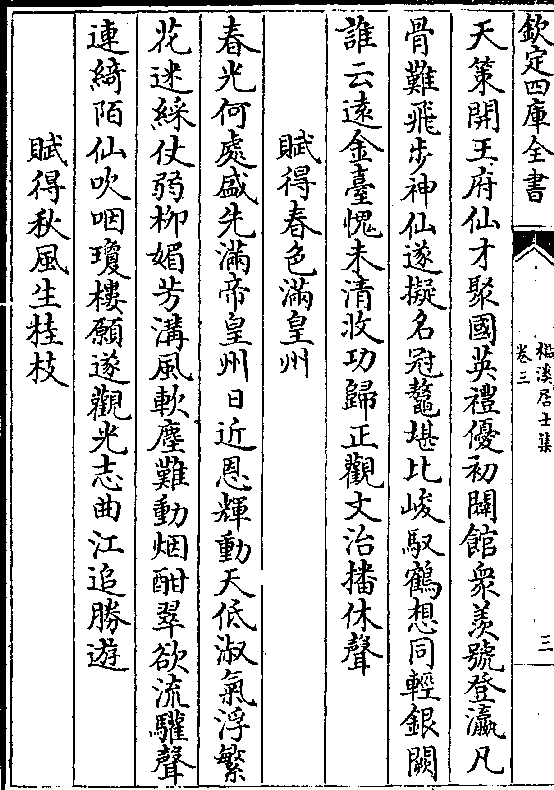 欽定四庫全書
梅溪居士集
卷三
三
天策開王府仙才聚國英禮優初闢館衆羨號登瀛凡
骨難飛步神仙遂擬名冠鼇堪比峻馭鶴想同輕銀闕
誰云遠金臺愧未清收功歸正觀文治播休聲
賦得春色滿皇州
春光何處盛先滿帝皇州日近恩輝動天低淑氣浮繁
花迷綵仗弱柳媚芳溝風軟塵難動烟酣翠欲流驩聲
連綺陌仙吹咽瓊樓願遂觀光志曲江追勝遊
賦得秋風生桂枝